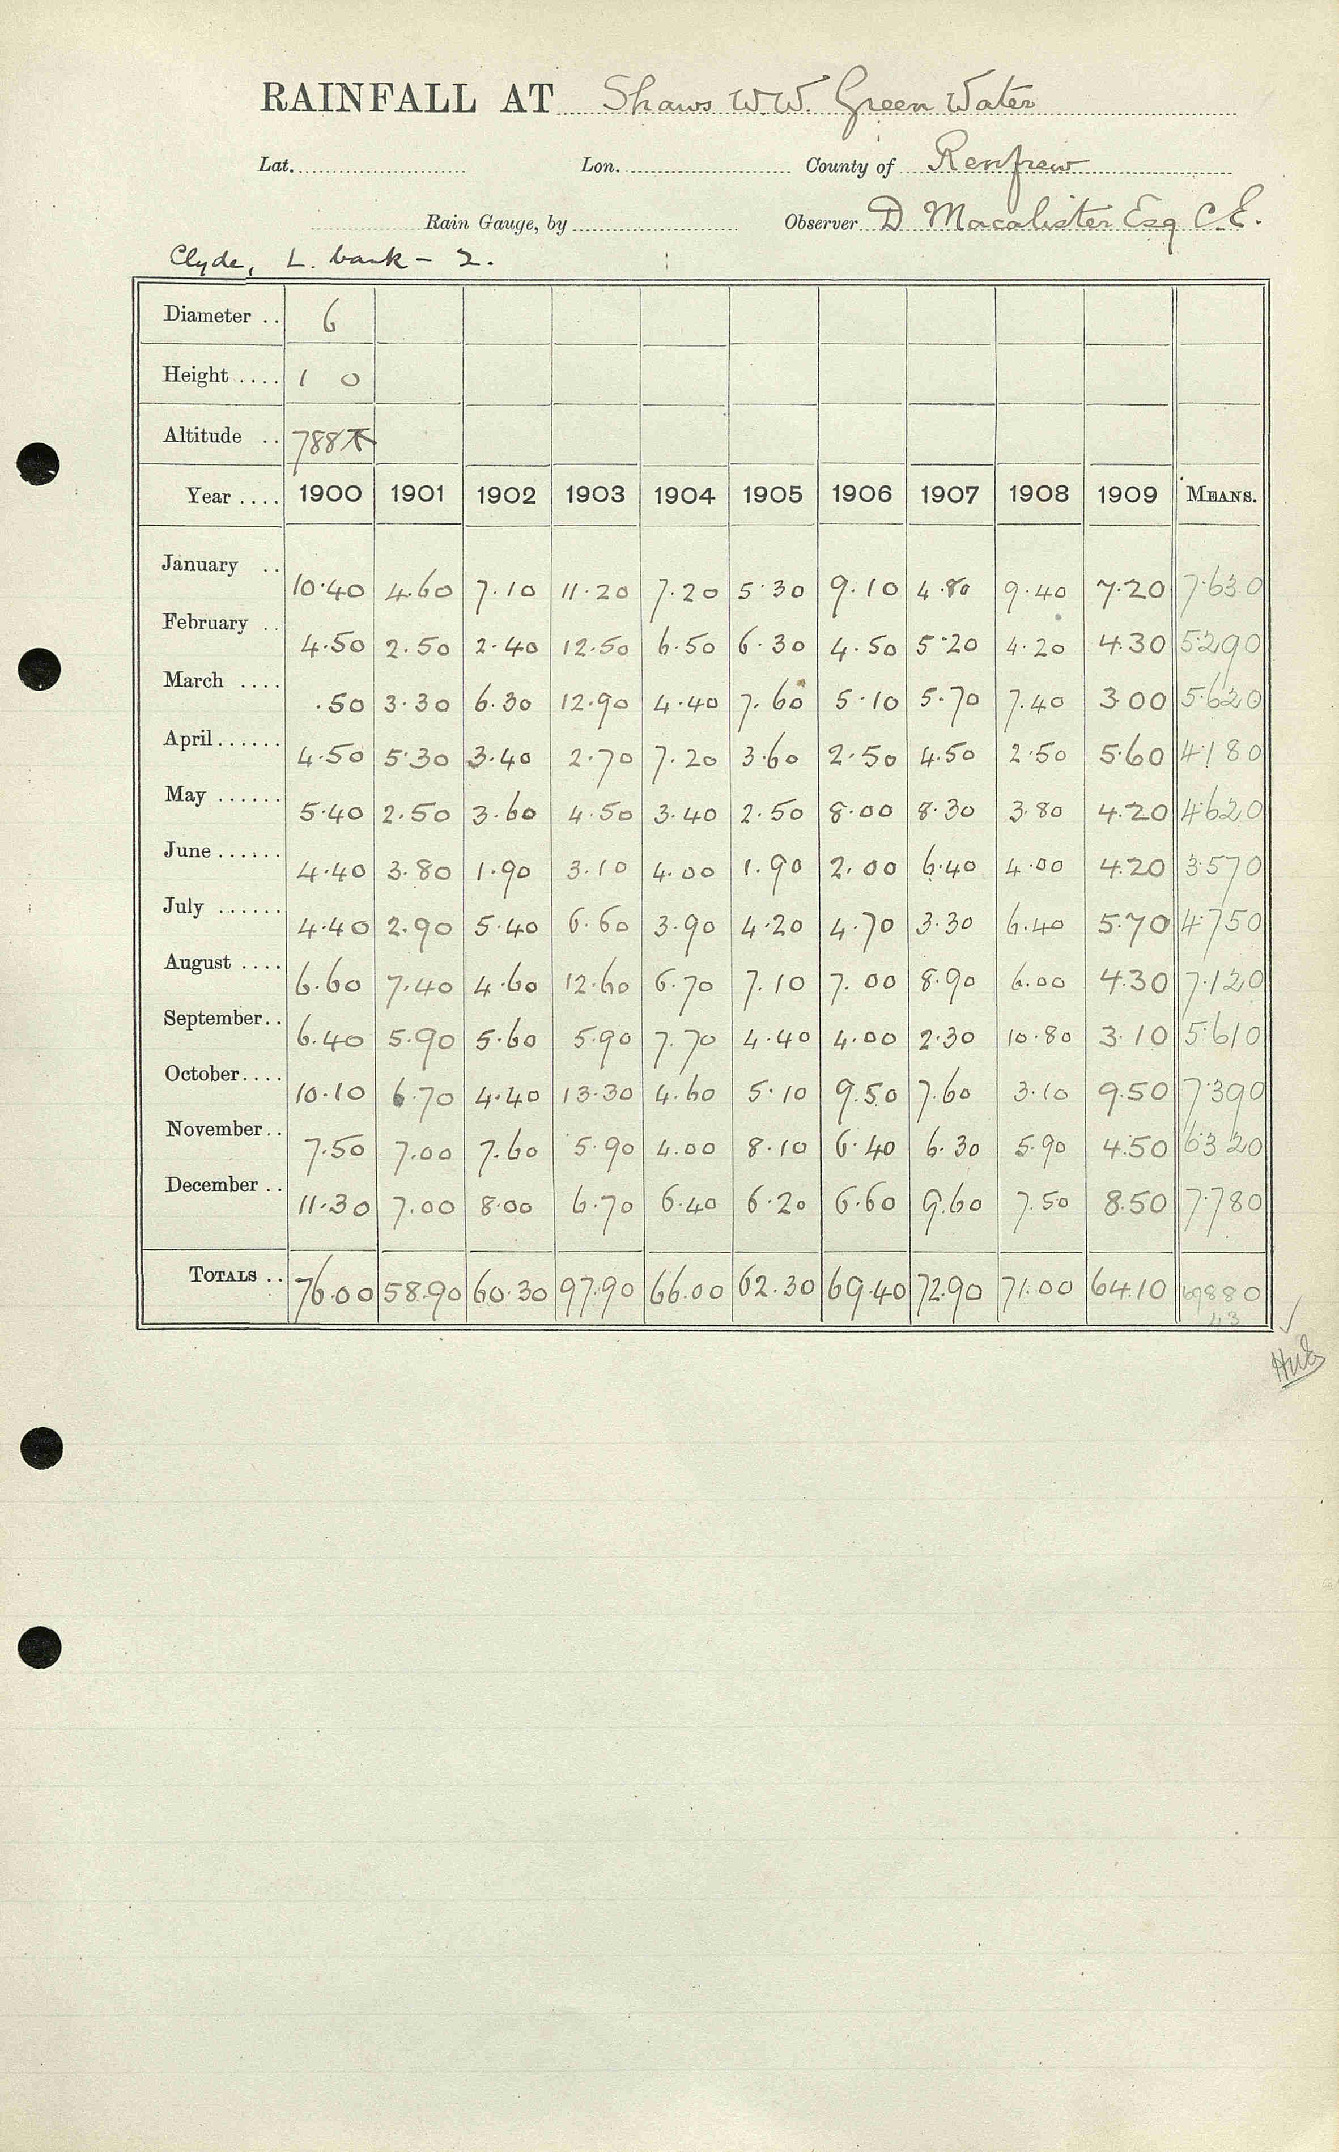 RAINFALL AT Shaws W.W. Green Water
Lat. Lon. County of Renfrew
Rain Gauge, by Observer D Macalister Esq C.E.
Clyde, L. bank - 2.
Diameter .. 6
Height .... 1 0
Altitude .. 788
Year .... 1900 1901 1902 1903 1904 1905 1906 1907 1908 1909 MEANS.
January .. 10.40 4.60 7.10 11.20 7.20 5.30 9.10 4.80 9.40 7.20 7.630
February .. 4.50 2.50 2.40 12.50 6.50 6.30 4.50 5.20 4.20 4.30 5.290
March .... .50 3.30 6.30 12.90 4.40 7.60 5.10 5.70 7.40 3.00 5.620
April...... 4.50 5.30 3.40 2.70 7.20 3.60 2.50 4.50 2.50 5.60 4.180
May ...... 5.40 2.50 3.60 4.50 3.40 2.50 8.00 8.30 3.80 4.20 4.620
June...... 4.40 3.80 1.90 3.10 4.00 1.90 2.00 6.40 4.00 4.20 3.570
July ...... 4.40 2.90 5.40 6.60 3.90 4.20 4.70 3.30 6.40 5.70 4.750
August .... 6.60 7.40 4.60 12.60 6.70 7.10 7.00 8.90 6.00 4.30 7.120
September.. 6.40 5.90 5.60 5.90 7.70 4.40 4.00 2.30 10.80 3.10 5.610
October.... 10.10 6.70 4.40 13.30 4.60 5.10 9.50 7.60 3.10 9.50 7.390
November.. 7.50 7.00 7.60 5.90 4.00 8.10 6.40 6.30 5.90 4.50 6320
December .. 11.30 7.00 8.00 6.70 6.40 6.20 6.60 9.60 7.50 8.50 7.780
TOTALS .. 76.00 58.90 60.30 97.90 66.00 62.30 69.40 72.90 71.00 64.10 69880
43